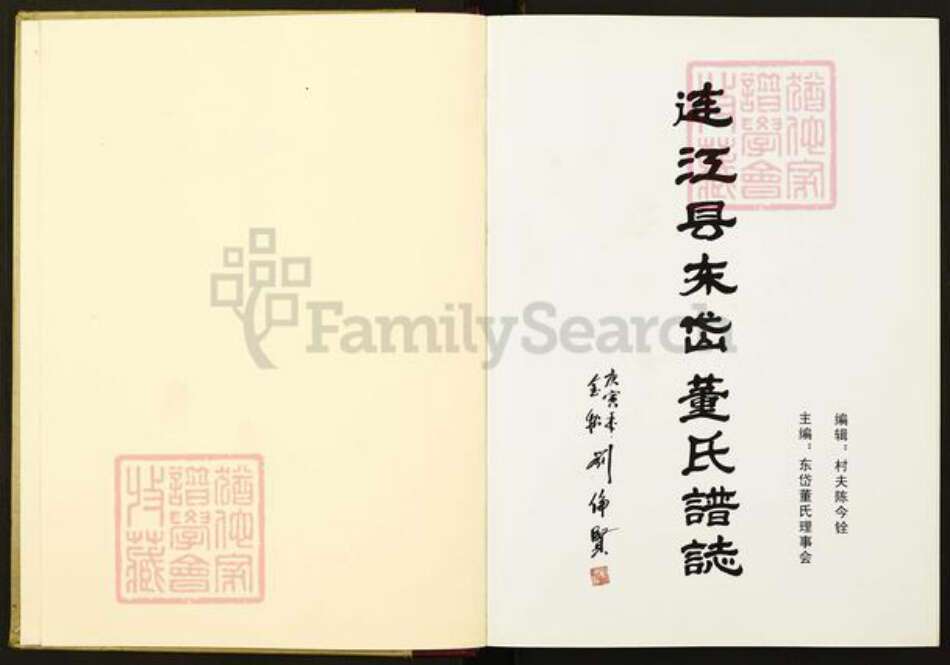 连江县东岱董氏譜誌
编辑：村夫陈今铨
主编：东岱董氏理事会
庚寅年
刘伟賢
譜學會
收藏
譜學會
收藏
FamilySearch